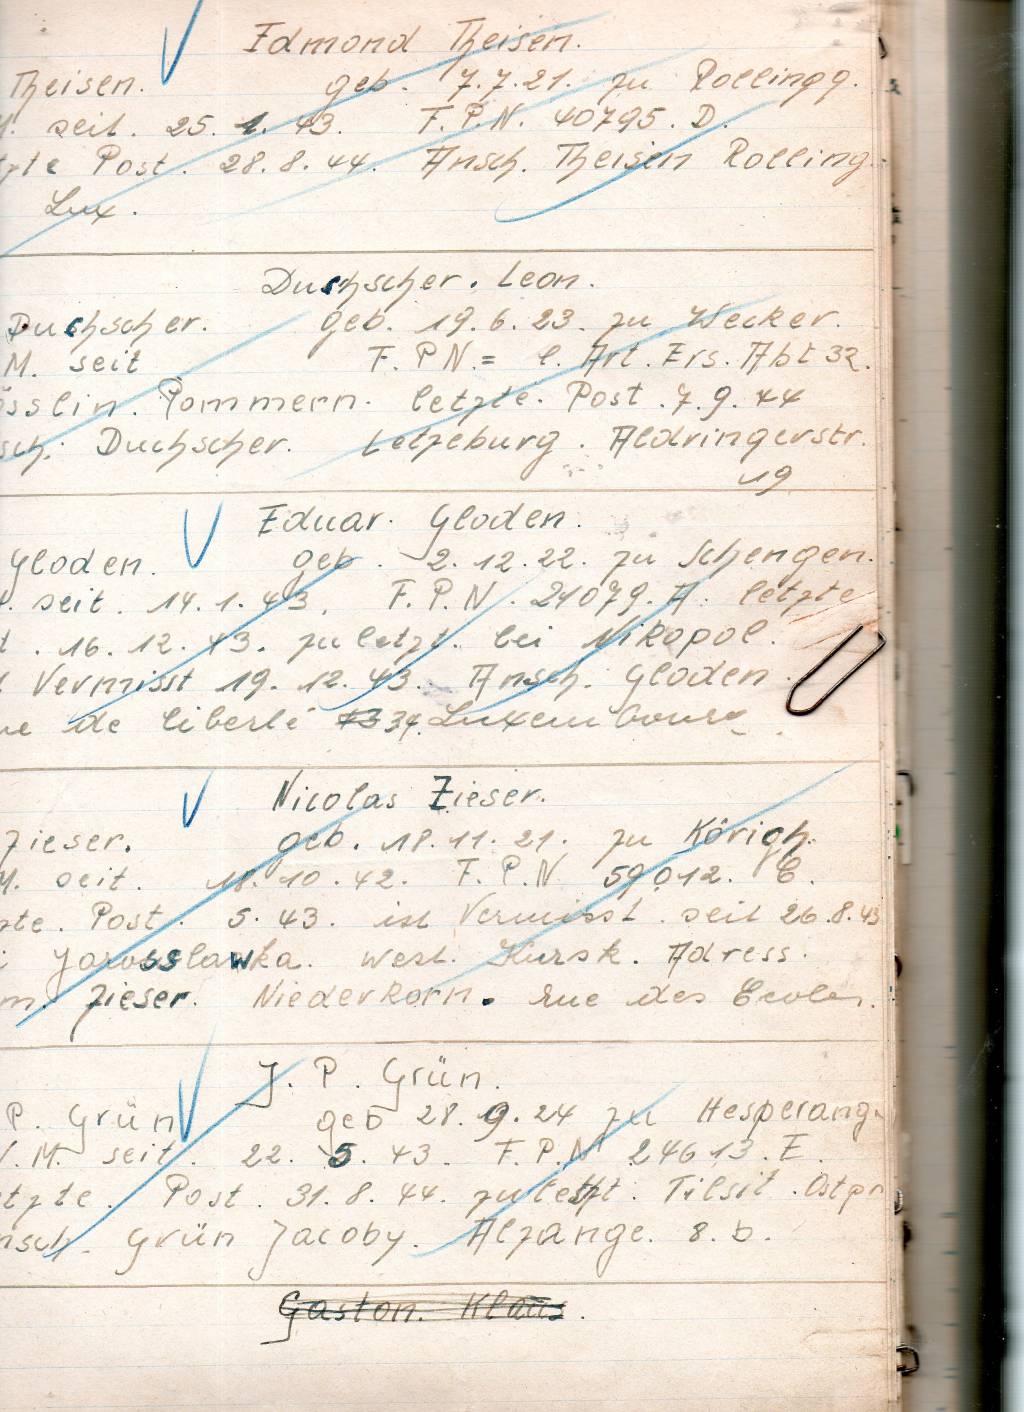 Edmond Theisen.
Theisen. geb. 7.7.21. zu Rollingg.
M. seit. 25. 1. 43. F.P.N. 40795. D.
zte Post. 28.8.44. Ansch. Theisen Rolling.
Lux.
Duchscher. Leon.
Duchscher. geb. 19.6.23. zu Wecker.
M. seit F.PN.= l. Art. Ers. Abt 32.
össlin. Pommern. letzte. Post. 7.9.44
sch. Duchscher. Letzeburg. Aldringerstr.
19
Eduar. Gloden.
Gloden. geb. 2.12.22. zu Schengen.
. seit. 14.1.43. F.P.N. 21079. A. letzte
t. 16.12.43. zuletzt. bei Nikopol.
Vermisst 19.12.43. Ansch. Gloden.
ue de liberté 34. Luxembourg.
Nicolas Zieser.
Zieser. geb. 18.11.21. zu Körich.
M. seit. 18.10.42. F.P.N 59012. C.
zte Post. 5.43. ist Vermisst. seit 26.8.43
Jarosslawka. west. Kursk. Adress.
m. Zieser. Niederkorn. Rue des Ecoles.
J. P. Grün.
P. Grün geb 28.9.24 zu Hesperang.
V.M. seit. 22. 5. 43. F.P.N 24613. E.
etzte. Post. 31.8.44. zuletzt. Tilsit. Ostpr
nsch. Grün Jacoby. Alzange. 8.b.
Gaston. Klaus.